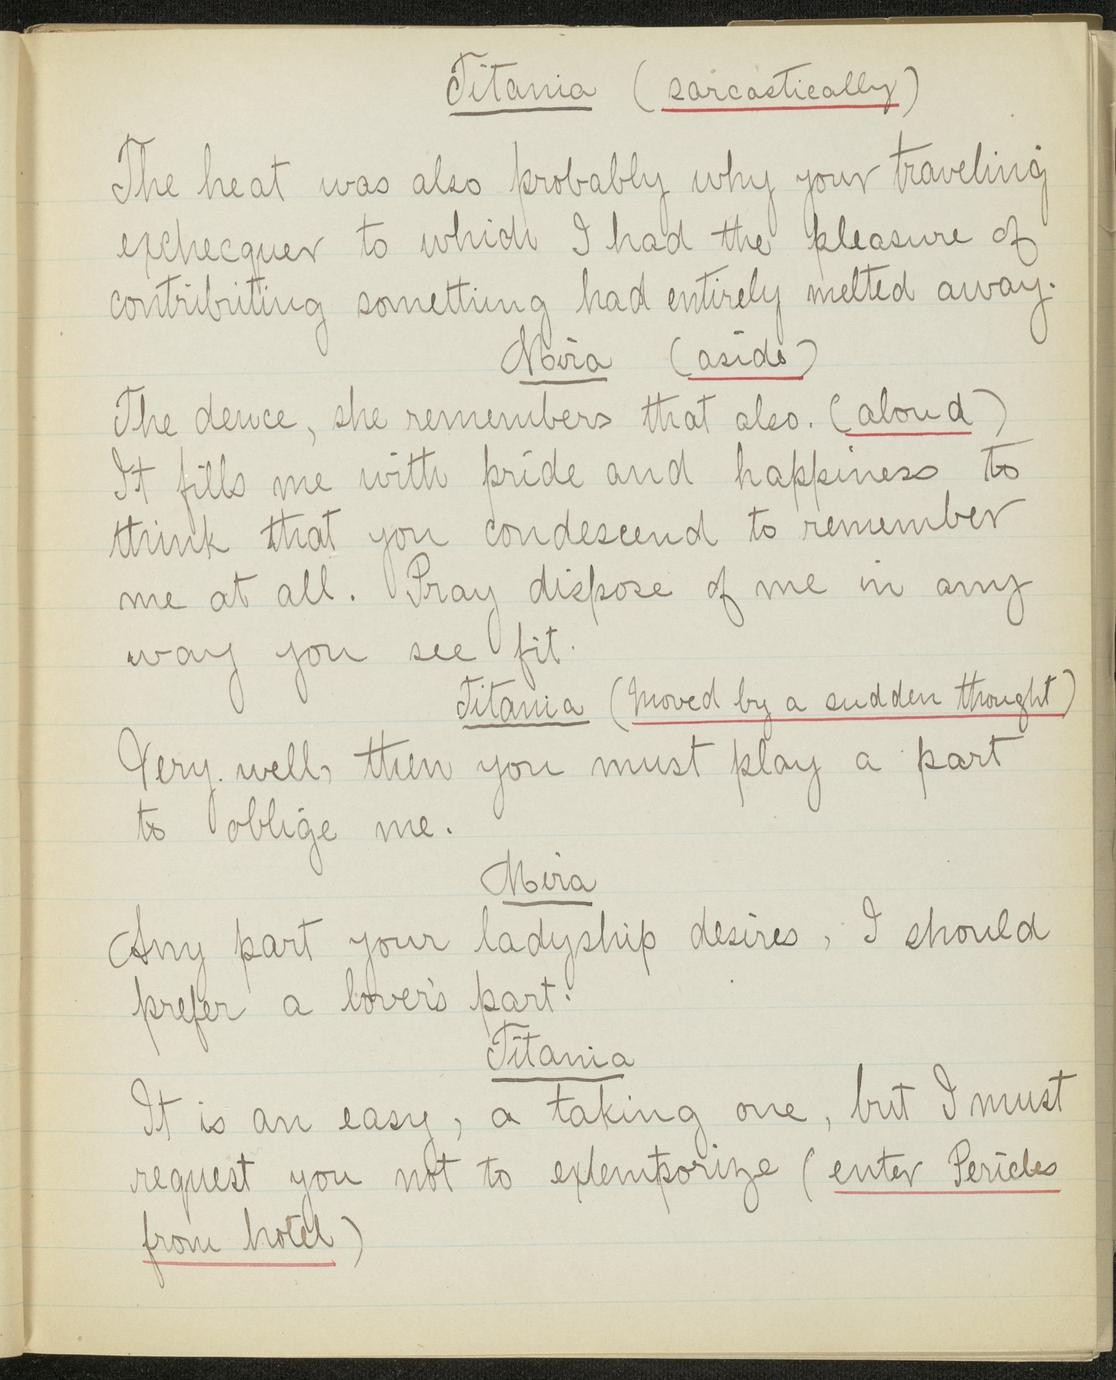 Titania (sarcastically)
The heat was also probably why your traveling
exchecquer to which I had the pleasure of
contributing something had entirely melted away.
Mira (aside)
The deuce, she remembers that also. (aloud)
It fills me with pride and happiness to
think that you condescend to remember
me at all. Pray dispose of me in any
way you see fit.
Titania (Moved by a sudden thought)
Very well, then you must play a part
to oblige me.
Mira
Any part your ladyship desires, I should
prefer a lover's part.
Titania
It is an easy, a taking one, but I must
request you not to extemporize (enter Pericles
from hotel)